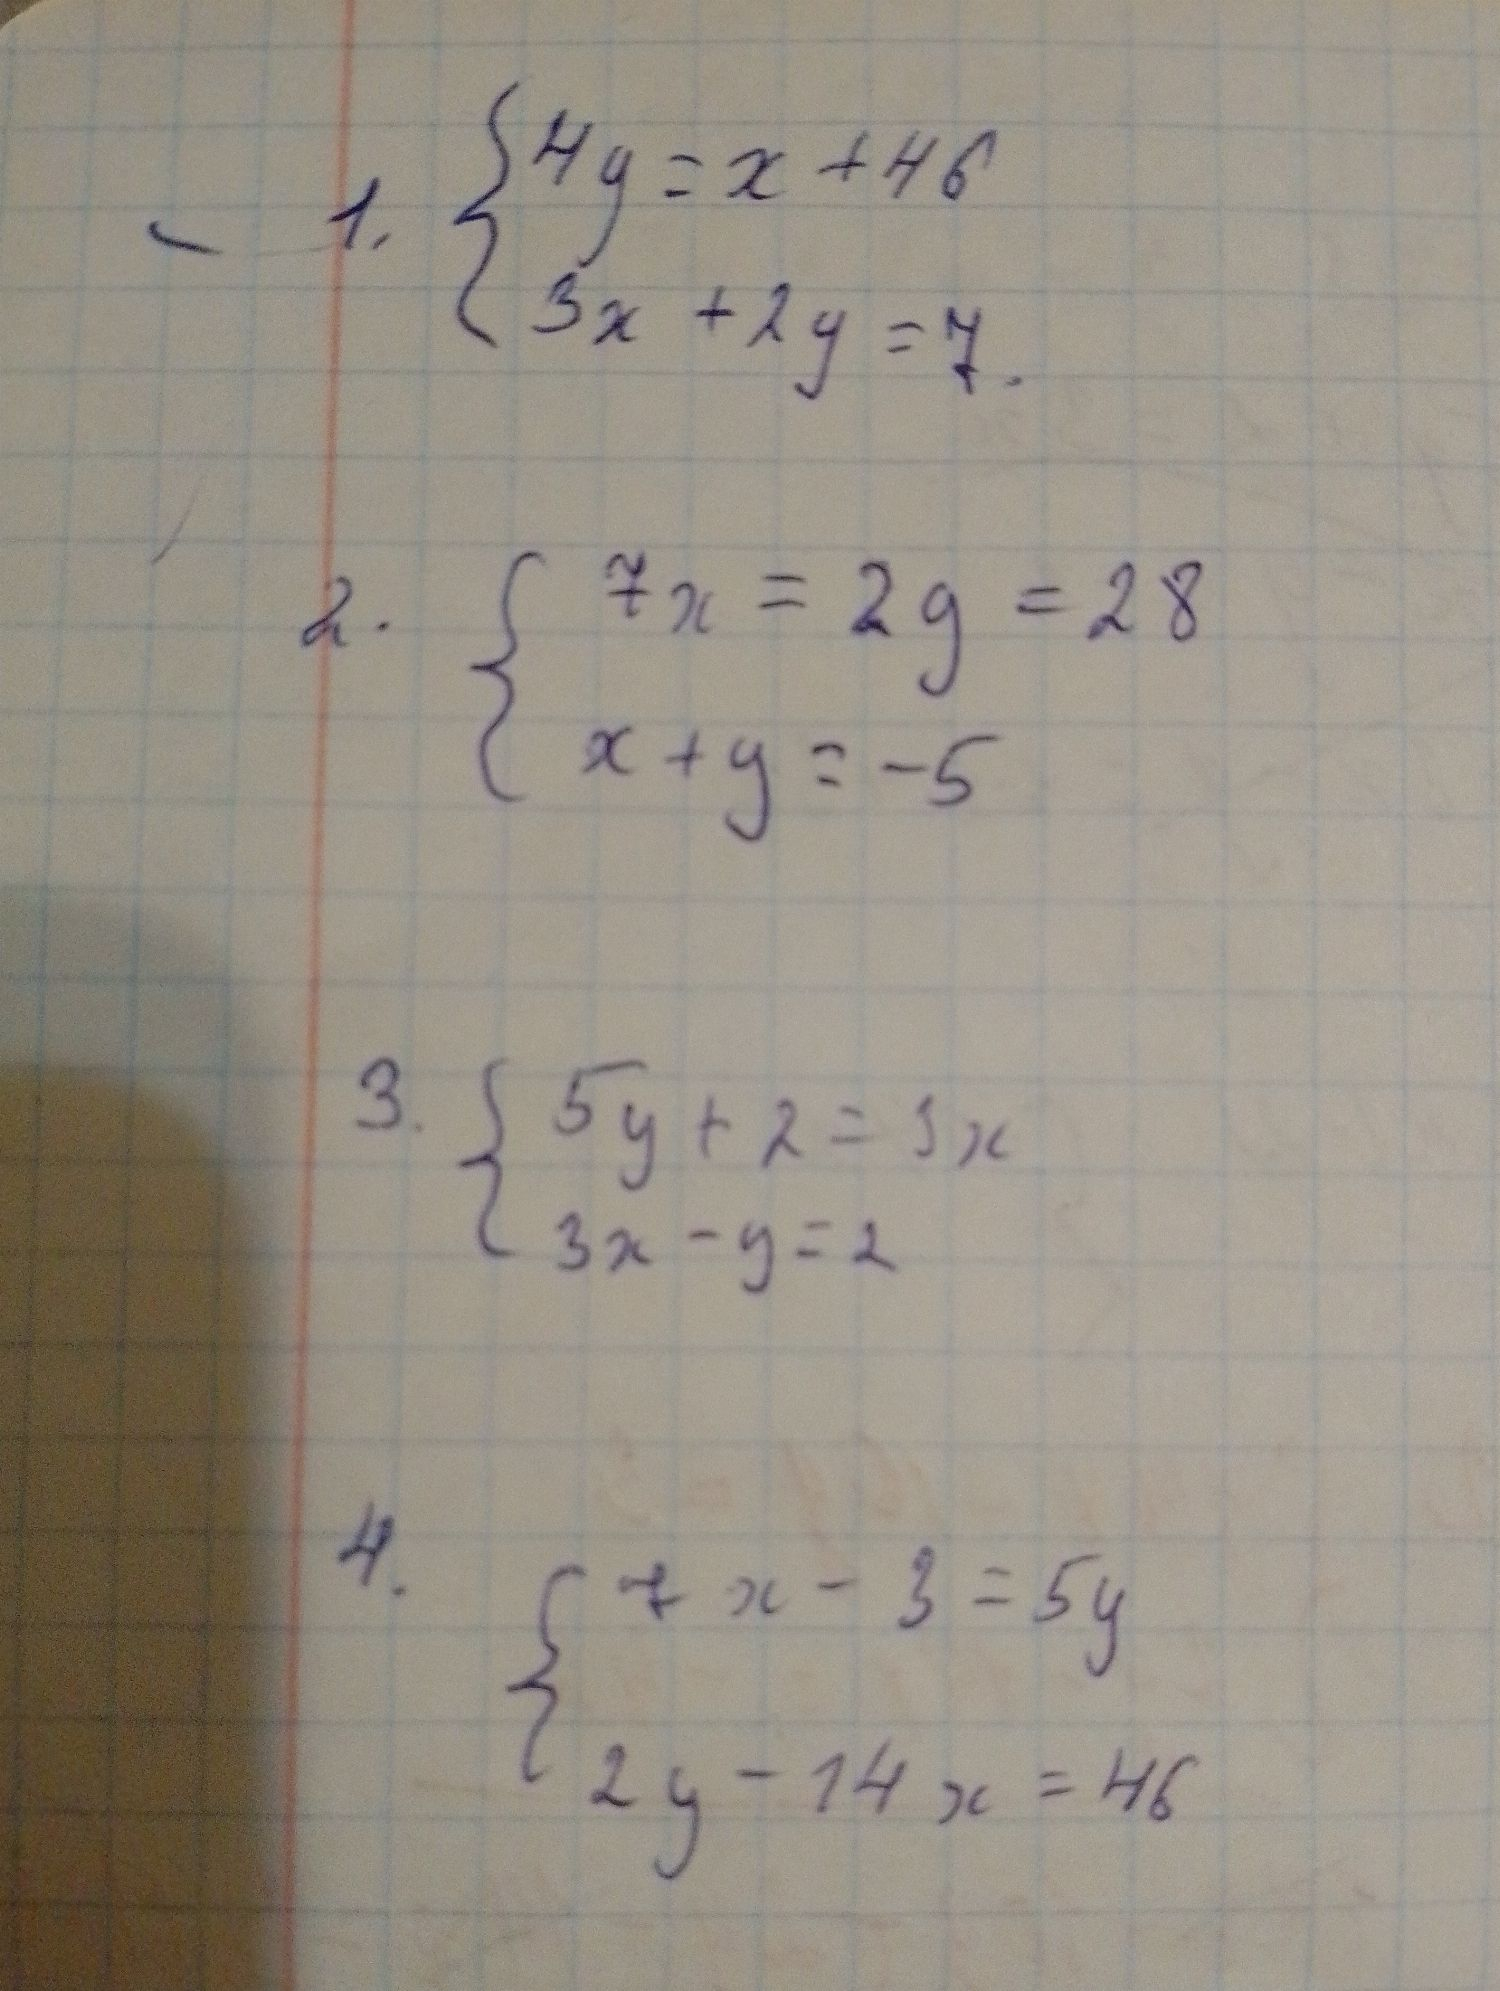 1. {4y = x + 46
3x + 2y = 7.
2. {7x = 2y = 28
x + y = -5
3. {5y + 2 = 3x
3x - y = 2
4. {7x - 3 = 5y
2y - 14x = 46